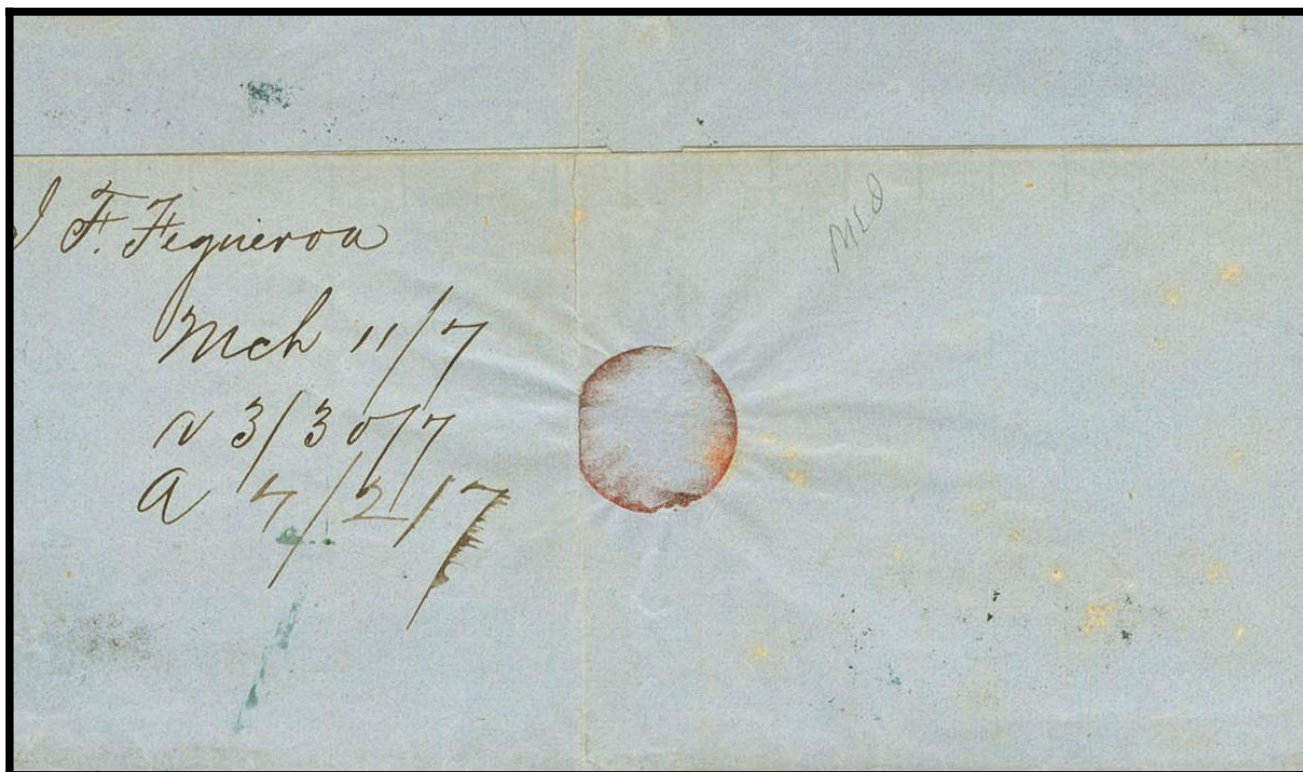 J F. Figueroa
Mch 11/7
r 3/30/7
a 4/2/7